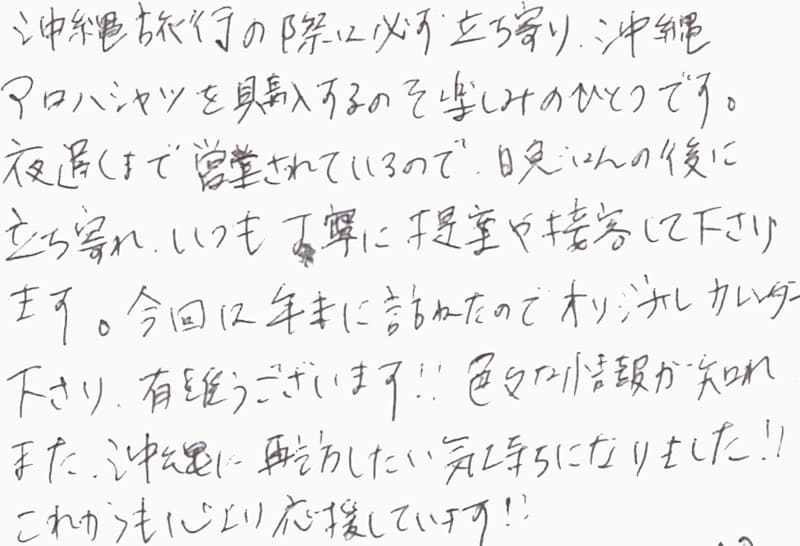 沖縄旅行の際に必ず立ち寄り、沖縄
アロハシャツを購入するのも楽しみのひとつです。
夜遅くまで営業されているので、晩ごはんの後に
立ち寄れ、いつも丁寧に提案や接客して下さり
ます。今回は年末に訪ねたのでオリジナルカレンダー
下さり、有難うございます!! 色々な情報が知れ
また、沖縄に再訪したい気持ちになりました!!
これからも心より応援しています!!